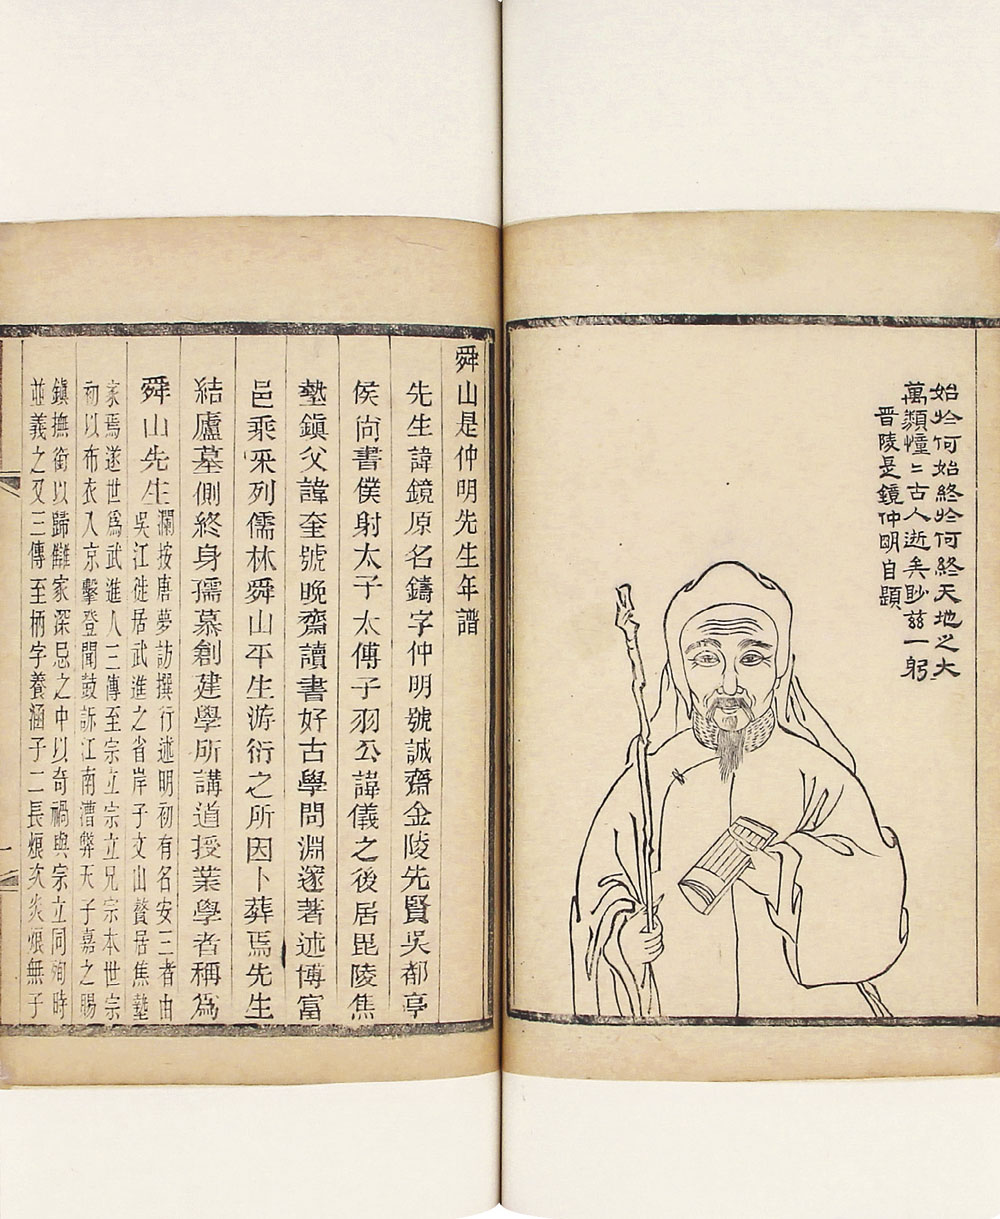 始於何始終於何終天地之大
萬類憧〻古人逝矣眇茲一躬
晉陵是鏡仲明自題
舜山是仲明先生年譜
先生諱鏡原名鑄字仲明號誠齋金陵先賢吳都亭
侯尚書僕射太子太傅子羽公諱儀之後居毘陵焦
墊鎮父諱奎號晚齋讀書好古學問淵邃著述博富
邑乘采列儒林舜山平生游衍之所因卜葬焉先生
結廬墓側終身孺慕創建學所講道授業學者稱爲
舜山先生
瀾按唐夢訪撰行述明初有名安三者由
吳江徙居武進之省岸子文山贅居焦墊
家焉遂世爲武進人三傳至宗立宗立兄宗本世宗
初以布衣入京擊登聞鼓訴江南漕弊天子嘉之賜
鎮撫銜以歸讎家深忌之中以奇禍與宗立同洵時
並義之又三傳至柄字養涵子二長烺次炎烺無子